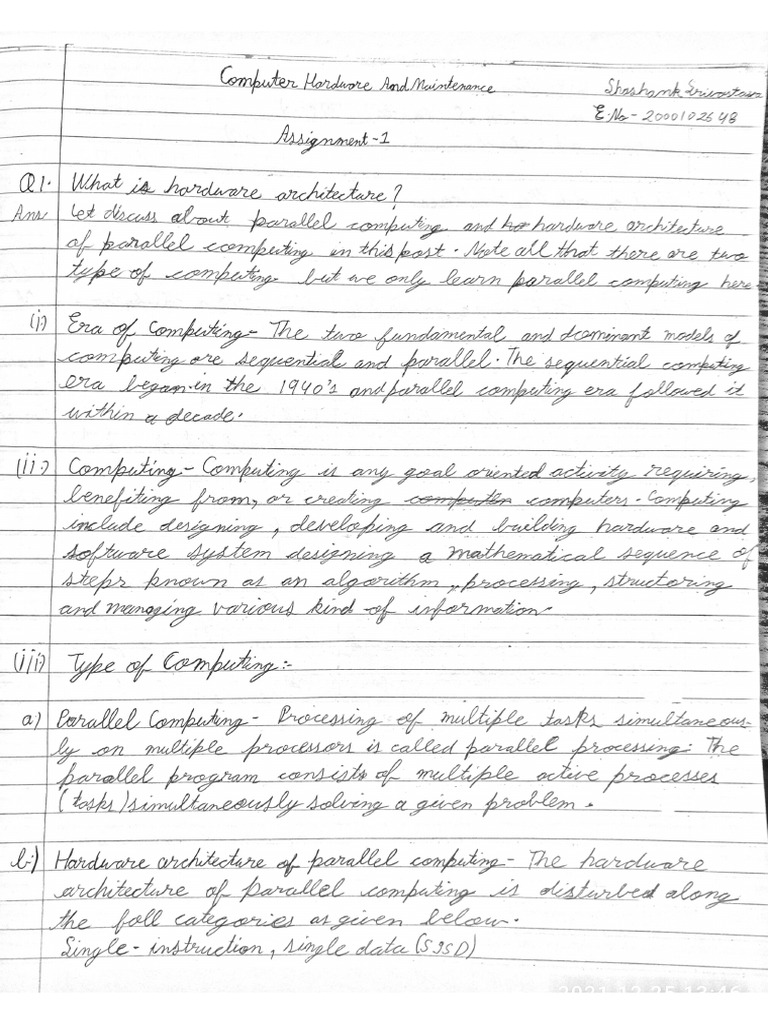 Computer Hardware And Maintenance
Shashank Srivastava
E.No - 2000102648
Assignment-1
Q1. What is hardware architecture?
Ans: Let discuss about parallel computing and hardware architecture
of parallel computing in this post. Note all that there are two
type of computing but we only learn parallel computing here.
(i) Era of Computing - The two fundamental and dominent models of
computing are sequential and parallel. The sequential computing
era began in the 1940's and parallel computing era followed it
within a decade.
(ii) Computing - Computing is any goal oriented activity requiring,
benefiting from, or creating computers. Computing
include designing, developing and building hardware and
software system designing a mathematical sequence of
steps known as an algorithm, processing, structoring
and managing various kind of information.
(iii) Type of Computing:-
a) Parallel Computing - Processing of multiple tasks simultaneous-
ly on multiple processors is called parallel processing. The
parallel program consists of multiple active processes
(tasks) simultaneously solving a given problem.
b) Hardware architecture of parallel computing - The hardware
architecture of parallel computing is disturbed along
the foll categories as given below.
Single-instruction, single data (SISD)